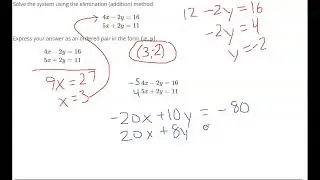 Solve the system using the elimination (addition) method
4x − 2y = 16
5x + 2y = 11
Express your answer as an ordered pair in the form (x, y).
4x − 2y = 16
5x + 2y = 11
9x = 27
x = 3
(3,2)
12 - 2y = 16
-2y = 4
y = -2
-5 4x − 2y = 16
4 5x + 2y = 11
-20x + 10y = -80
20x + 8y